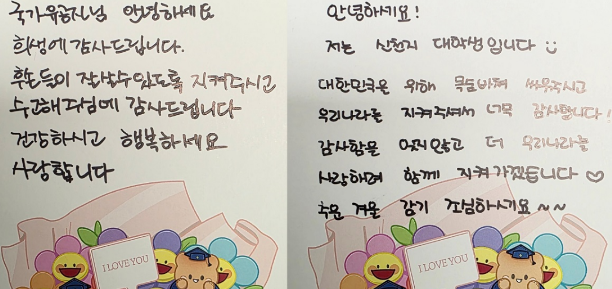 국가유공자님 안녕하세요
희생에 감사드립니다.
후손들이 잘살수있도록 지켜주시고
수고해주심에 감사드립니다
건강하시고 행복하세요
사랑합니다
I LOVE YOU
안녕하세요!
저는 신천지 대학생입니다
대한민국을 위해 목숨바쳐 싸워주시고
우리나라를 지켜주셔서 너무 감사합니다!
감사함을 잊지않고 더 우리나라를
사랑하며 함께 지켜가겠습니다 ♡
추운 겨울 감기 조심하시기요 ~~
I LOVE YOU